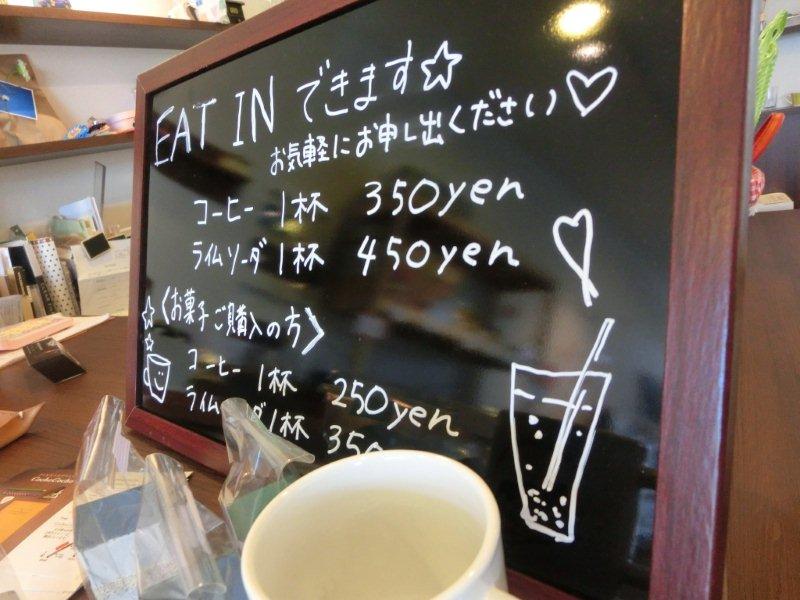 EAT IN できます☆
お気軽にお申し出ください♡
コーヒー 1杯 350yen
ライムソーダ 1杯 450yen
〈お菓子ご購入の方〉
コーヒー 1杯 250yen
1杯